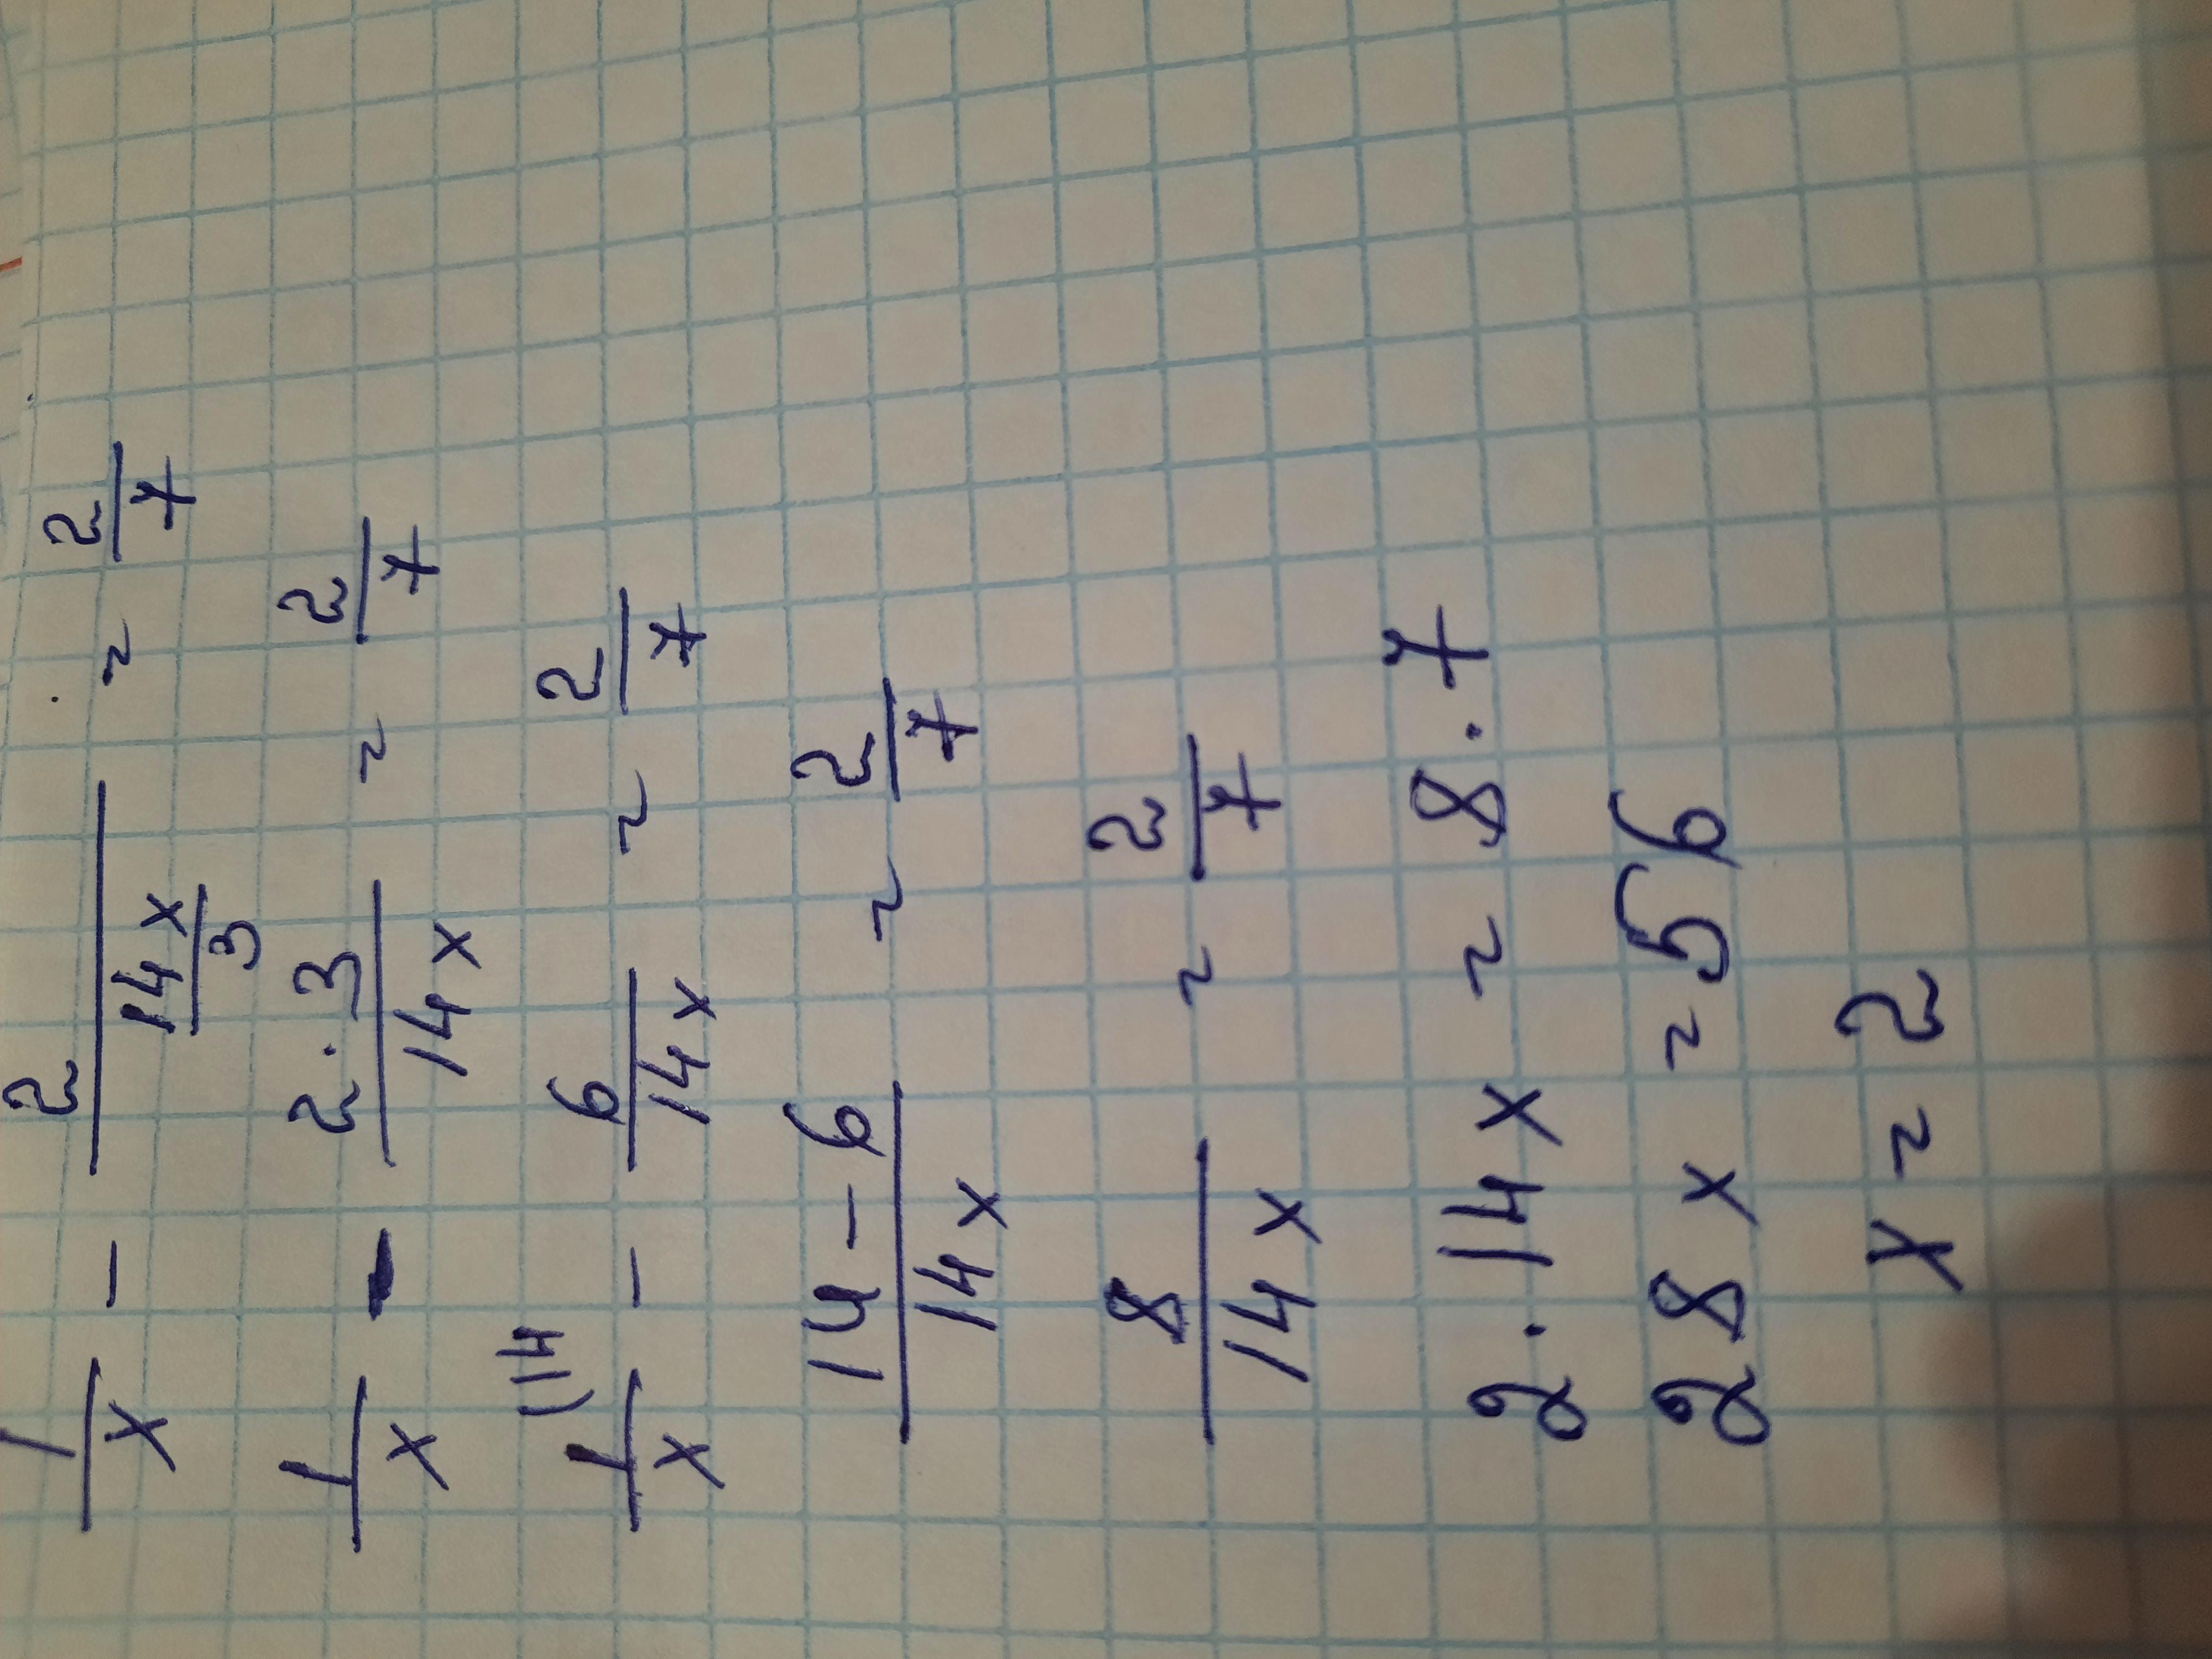 1/x - 2/(14x/3) = 2/7
1/x - 2·3/14x = 2/7
1/x (14 - 6/14x = 2/7
14-6/14x = 2/7
8/14x = 2/7
2·14x = 8·7
28x = 56
x = 2